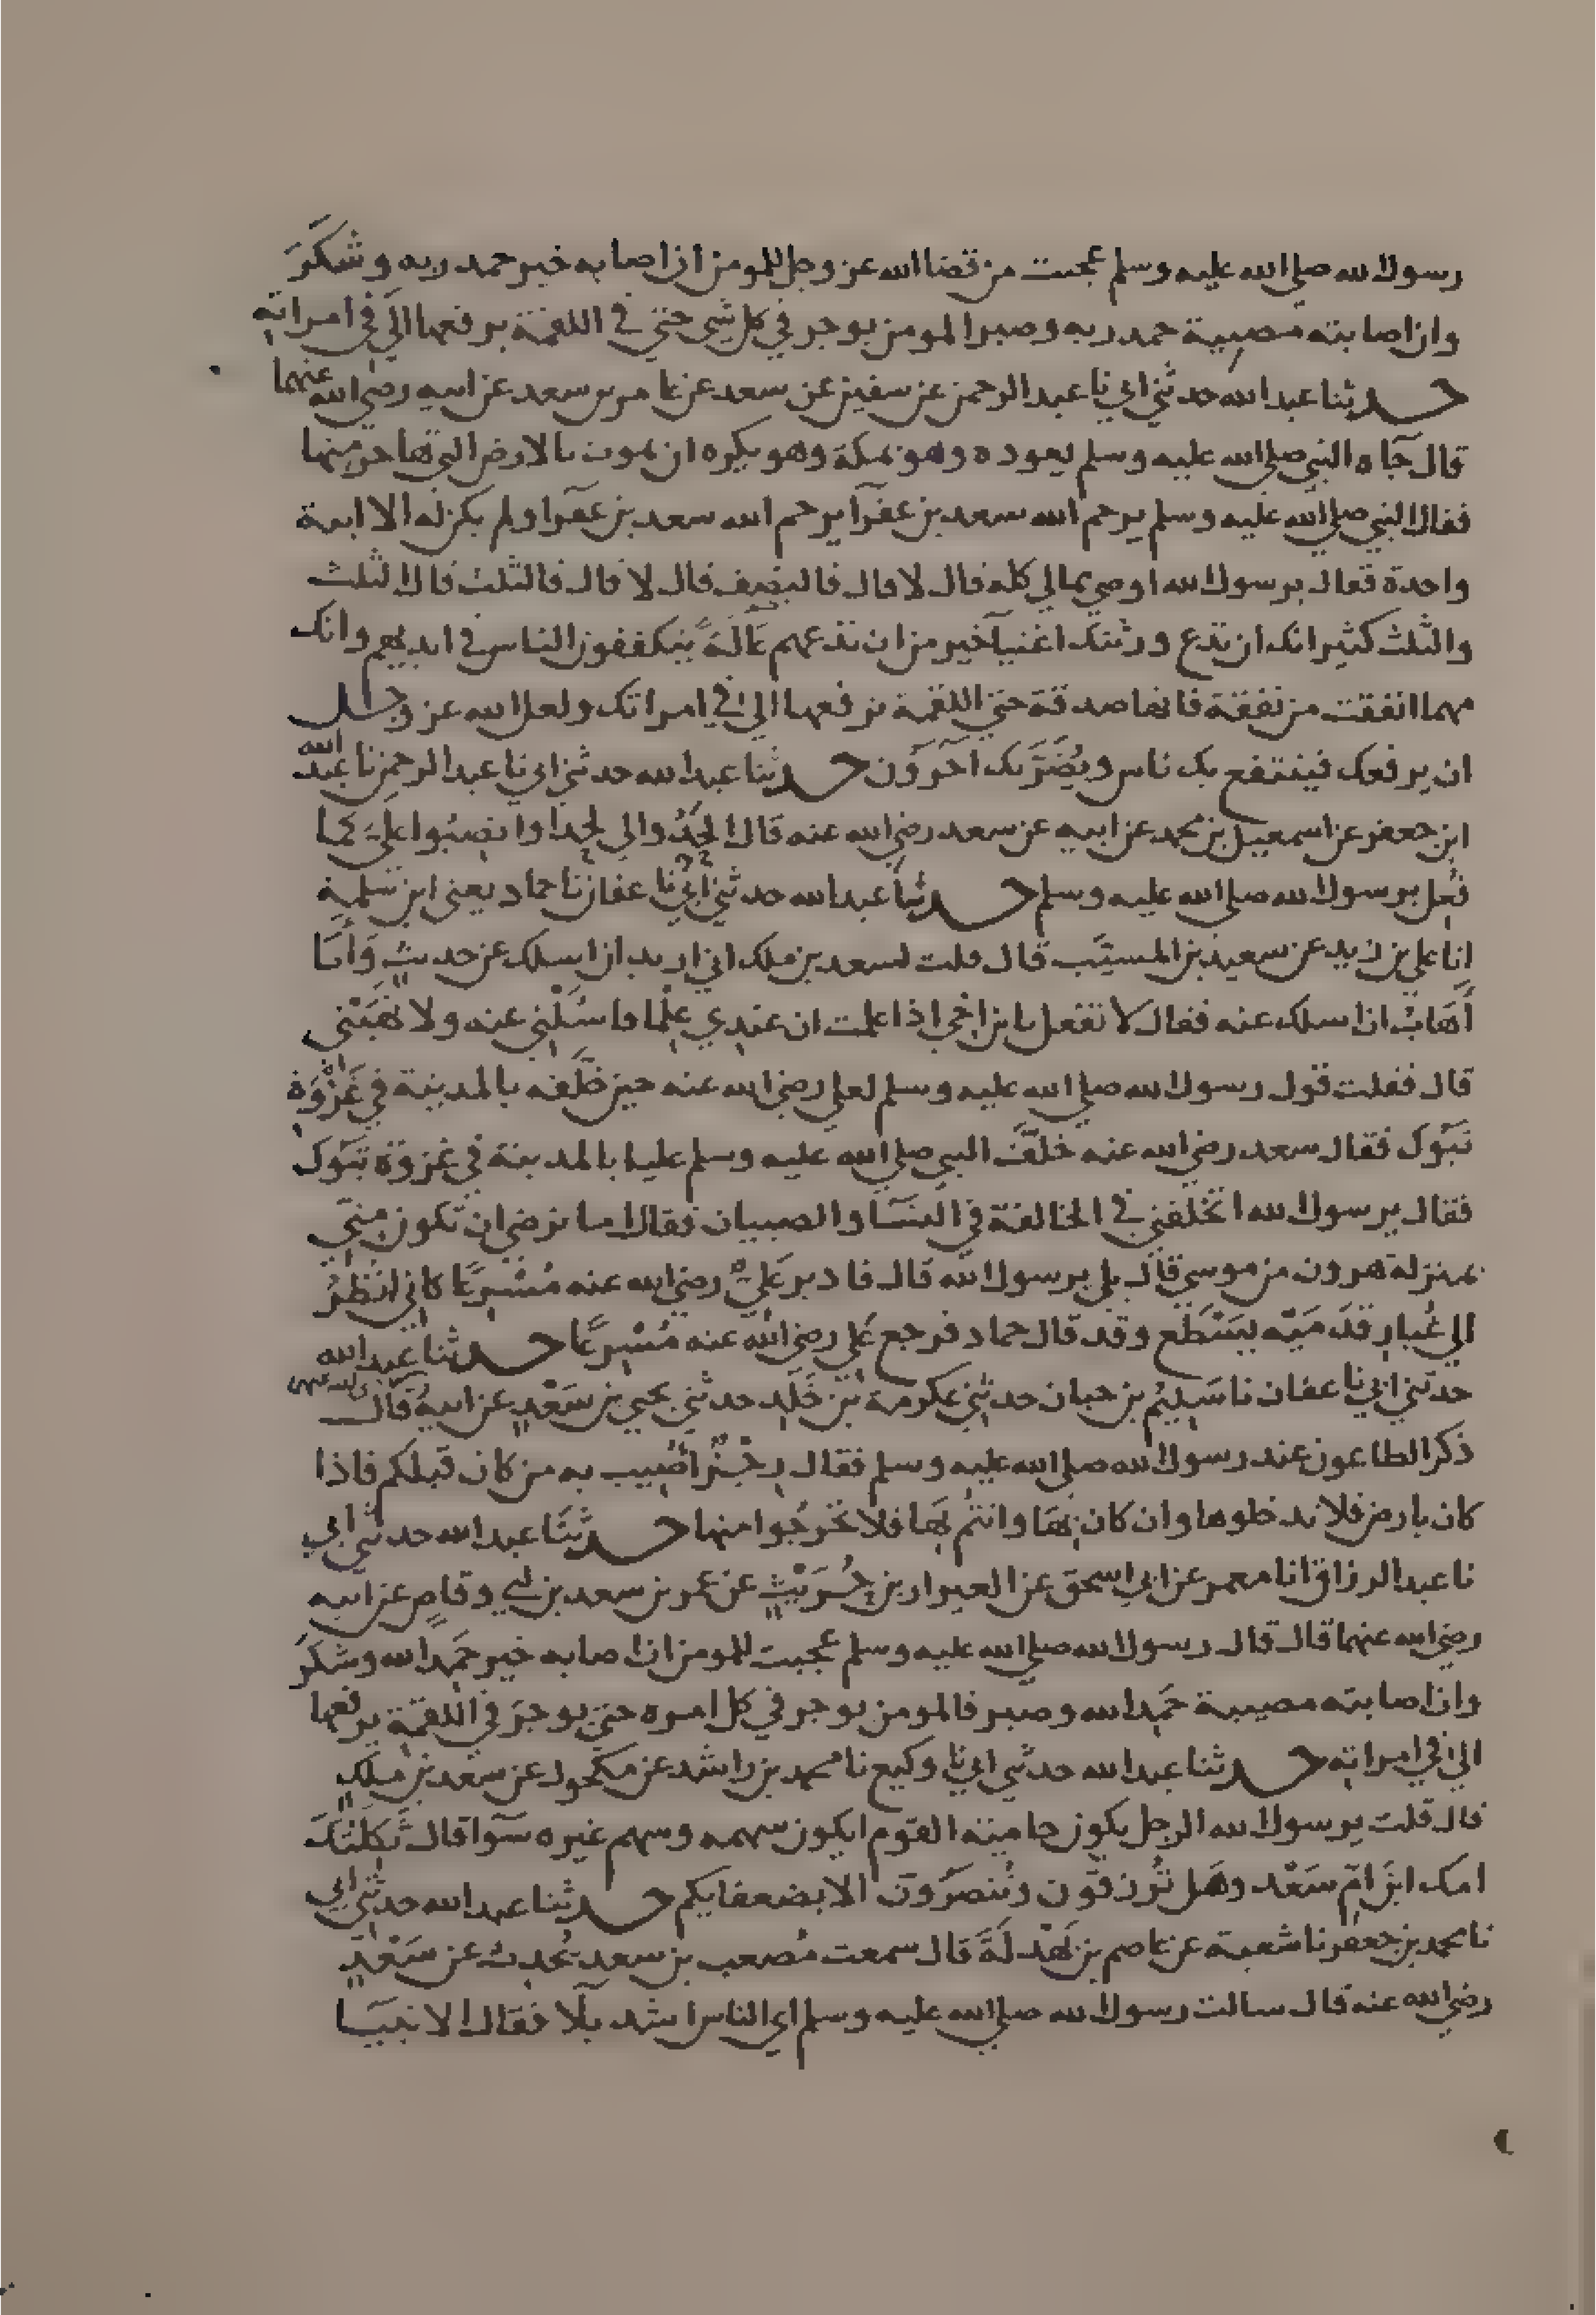 رسول الله صلى الله عليه وسلم عجبت من قضا الله عز وجل للمومن ان اصابه خير حمد ربه وشكر
وان اصابته مصيبة حمد ربه وصبر المومن يوجر في كل شي حتى في اللقمة يرفعها الى في امراته
حدثنا عبد الله حدثني ابي نا عبد الرحمن عن سفين عن سعد عن عامر بن سعد عن ابيه رضي الله عنهما
قال جاه النبي صلى الله عليه وسلم يعوده وهو بمكة وهو يكره ان يموت بالارض التي هاجر منها
فقال النبي صلى الله عليه وسلم يرحم الله سعد بن عفرا يرحم الله سعد بن عفرا ولم يكن له الا ابنة
واحدة فقال يرسول الله اوصي بمالي كله قال لا قال فالنصف قال لا قال فالثلث قال الثلث
والثلث كثير انك ان تدع ورثتك اغنيآ خير من ان تدعهم عالة يتكففون الناس في ايديهم وانك
مهما انفقت من نفقة فانها صدقة حتى اللقمة ترفعها الى في امراتك ولعل الله عز وجل
ان يرفعك فينتفع بك ناس ويُضَرَّ بك آخَرُون حدثنا عبد الله حدثني ابي نا عبد الرحمن نا عبد الله
ابن جعفر عن اسمعيل بن محمد عن ابيه عن سعد رضي الله عنه قال الحَدُوا لي لحدا وانصبوا عَلَيَّ كما
فُعِل برسول الله صلى الله عليه وسلم حدثنا عبد الله حدثني ابي نا عفان نا حماد يعني ابن سَلمة
انا علي بن زيد عن سعيد بن المسيَّب قال قلت لسعد بن ملك اني اريد ان اسلك عن حديثٍ وَأَنَا
أَهَابُ ان اسلك عنه فقال لا تفعل يابن اخي اذا علمت ان عندي عِلْما فاسْئَلْني عنه ولا تَهَبْني
قال فقلت قول رسول الله صلى الله عليه وسلم لعلي رضي الله عنه حين خَلَّفه بالمدينة في غَزْوَةِ
تَبُوك فقال سعد رضي الله عنه خَلَّفَ النبي صلى الله عليه وسلم عليا بالمدينة في غزوة تَبُوك
فقال يرسول الله اتُخَلفني في الخالفة في النسآ والصبيان فقال اما ترضى ان تكون مِنّي
بمنزلة هرون من موسى قال بلى يرسول الله قال فادبر عَليٌّ رضي الله عنه مُسْرِعًا كاني انْظُرُ
الى غُبارِ قَدَمَيْه يَسْطَع وقد قال حماد فرجع عَلي رضي الله عنه مُسْرِعًا حدثنا عبد الله
حدثني ابي نا عفان نا سَلِيمُ بن حبان حدثني عكرمة بْنُ خَلِد حدثني يحيى بن سَعْدٍ عن ابيهُ قال
ذكر الطاعون عند رسول الله صلى الله عليه وسلم فقال رِجْزٌ اُصِيب به من كان قبلكم فاذا
كان بارض فلا تدخلوها وان كان بهَا وانتُم بِهَا فلا تَخرُجوا منها حدثنا عبد الله حدثني ابي
نا عبد الرزاق انا معمر عن ابي اسحق عن العيزار بن حُرَيْثٍ عن عمر بن سعد بن ابي وقاصٍ عن ابيه
رضي الله عنهما قال قال رسول الله صلى الله عليه وسلم عجبت للمومن ان اصابه خير حَمِدَ الله وشكَرَ
وان اصابته مصيبة حَمِد الله وصبر فالمومن يوجر في كل امره حتى يوجرَ في اللقمة يرفعها
الى في امراته حدثنا عبد الله حدثني ابي نا وكيع نا محمد بن راشد عن مكحول عن سعد بن ملك
قال قلت يرسول الله الرجل يكون حامية القوم ايكون سهمه وسهم غيره سوآ قال ثَكِلَتْكَ
امك ابْنَ اُمّ سَعْد وهَل تُرْزقُون وتُنْصَرُون الا بضعفايكم حدثنا عبد الله حدثني ابي
نا محمد بن جعفر نا شعبة عن عاصم بن بَهْدَلَةَ قال سمعت مُصعب بن سعد يُحَدث عن سَعْدٍ
رضي الله عنه قال سالت رسول الله صلى الله عليه وسلم اي الناس اشد بلآ فقال الانبيآ